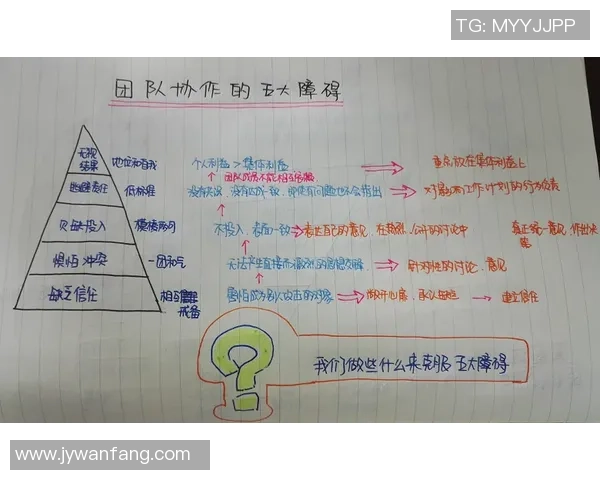 TG: MYYJJPP
团队协作的五大障碍
无视
结果
地位和自我
个人利益 > 集体利益
重点放在集体利益上
团队成员不能相互
逃避责任
低标准
没有达成一致
对最
工作计划的
负责
投入
模棱两可
不投入,表面一致
表达自己的意见,在
公开的讨论中
真正统一意见,作出决
策
惧怕冲突
一团和气
无法产生直接而激烈的思想交锋
针对性的讨论、意见
缺乏信任
相互
戒备
害怕成为别人攻击的对象
敞开心扉,承认
建立信任
我们做些什么来克服五大障碍
www.jywanfang.com